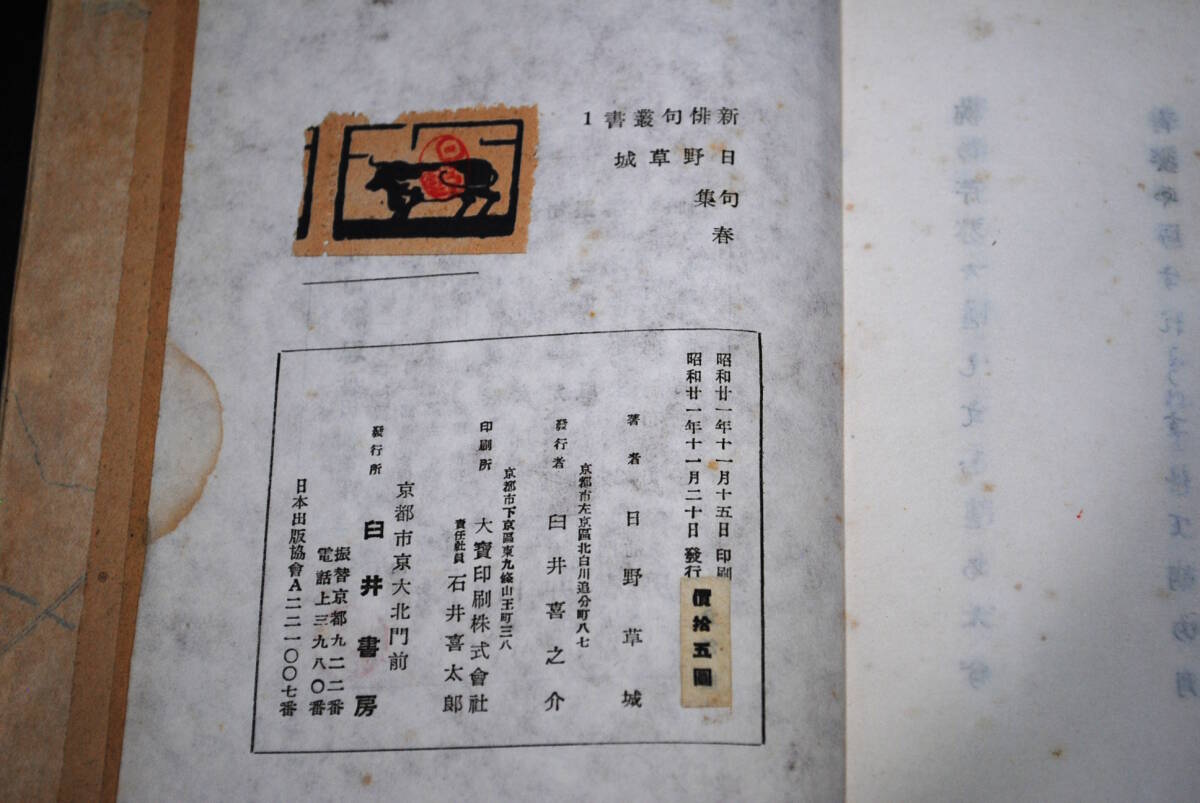 新俳句叢書1
日野草城
句集
春
昭和廿一年十一月十五日 印刷
昭和廿一年十一月二十日 發行
價拾五圓
著者 日野草城
京都市左京區北白川追分町八七
發行者 臼井喜之介
京都市下京區東九條山王町三八
印刷所 大寶印刷株式會社
責任社員 石井喜太郎
京都市京大北門前
發行所 臼井書房
振替京都九二二番
電話上三九八〇番
日本出版協會A二二一〇〇七番